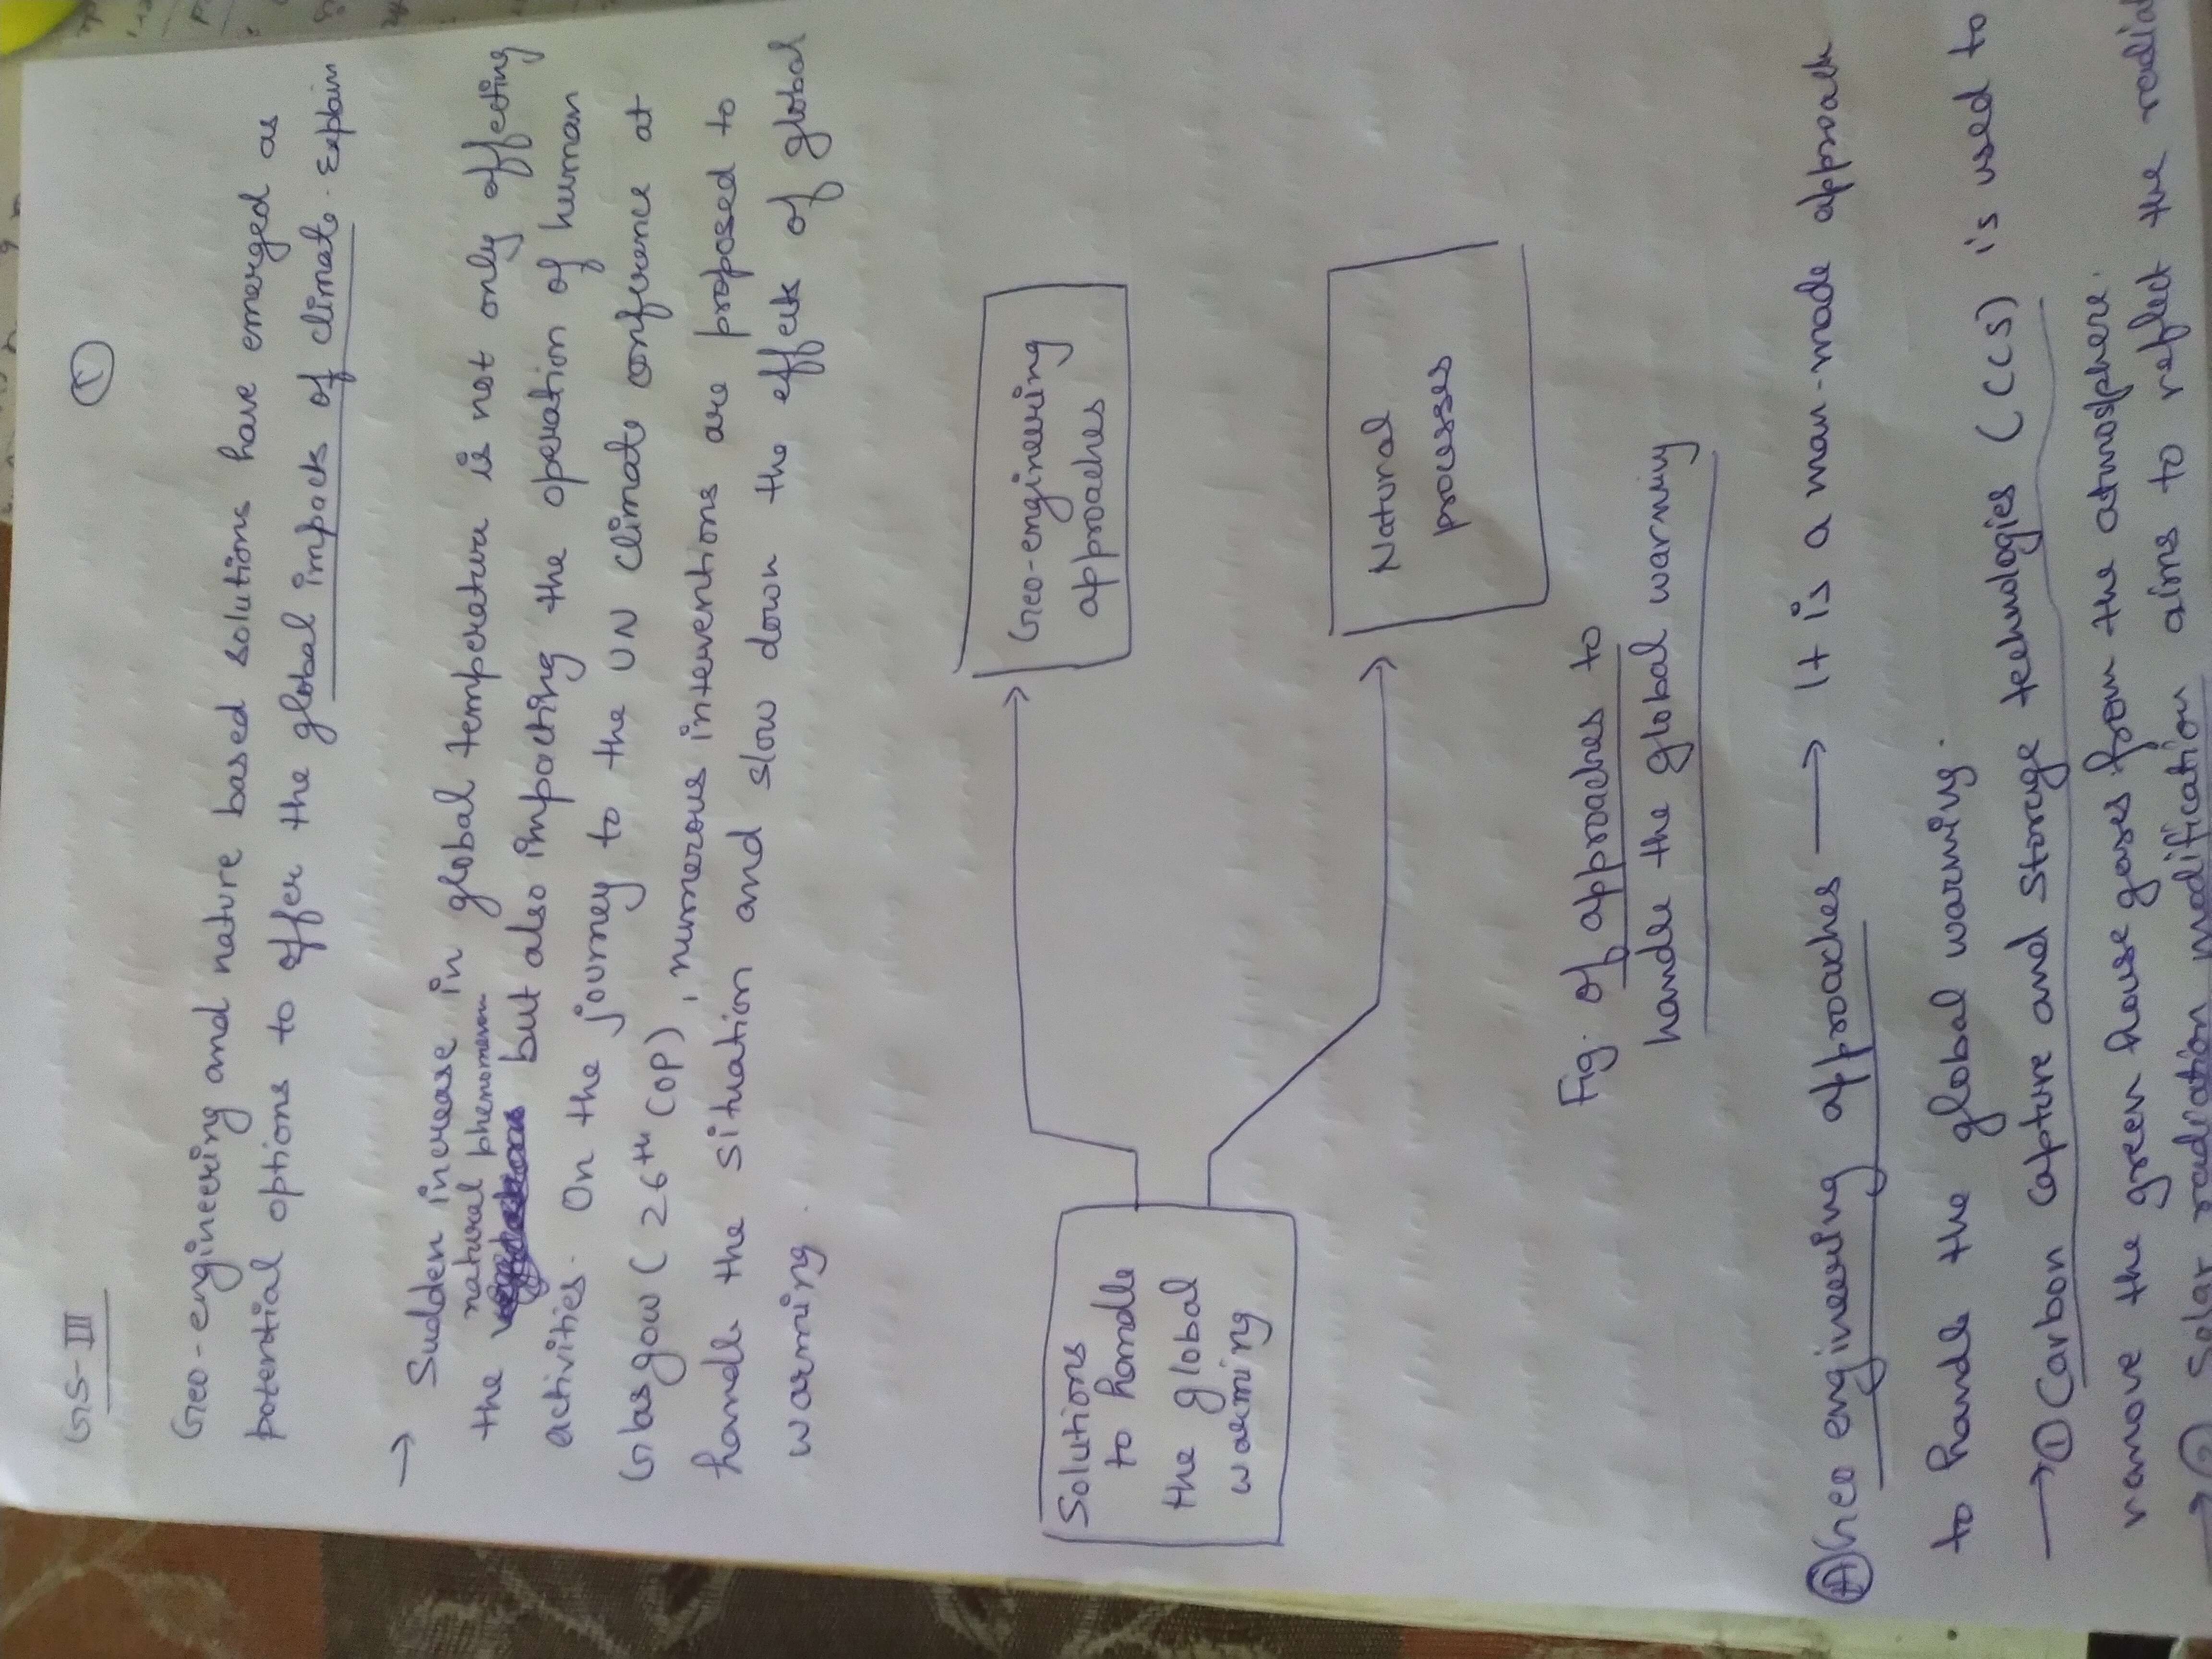 GS-III
①
Geo-engineering and nature based solutions have emerged as
potential options to offer the global impacts of climate. Explain
→ Sudden increase in global temperature is not only affecting
the natural phenomenon but also impacting the operation of human
activities. On the journey to the UN climate conference at
Glasgow (26th COP), numerous interventions are proposed to
handle the situation and slow down the effects of global
warming.
Solutions
to handle
the global
warming
Geo-engineering
approaches
Natural
processes
Fig. of approaches to
handle the global warming
Ⓐ Geo engineering approaches → It is a man-made approach
to handle the global warming.
→ ① Carbon capture and storage technologies (CCS) is used to
remove the green house gases from the atmosphere.
→ ② Solar radiation modification aims to reflect the